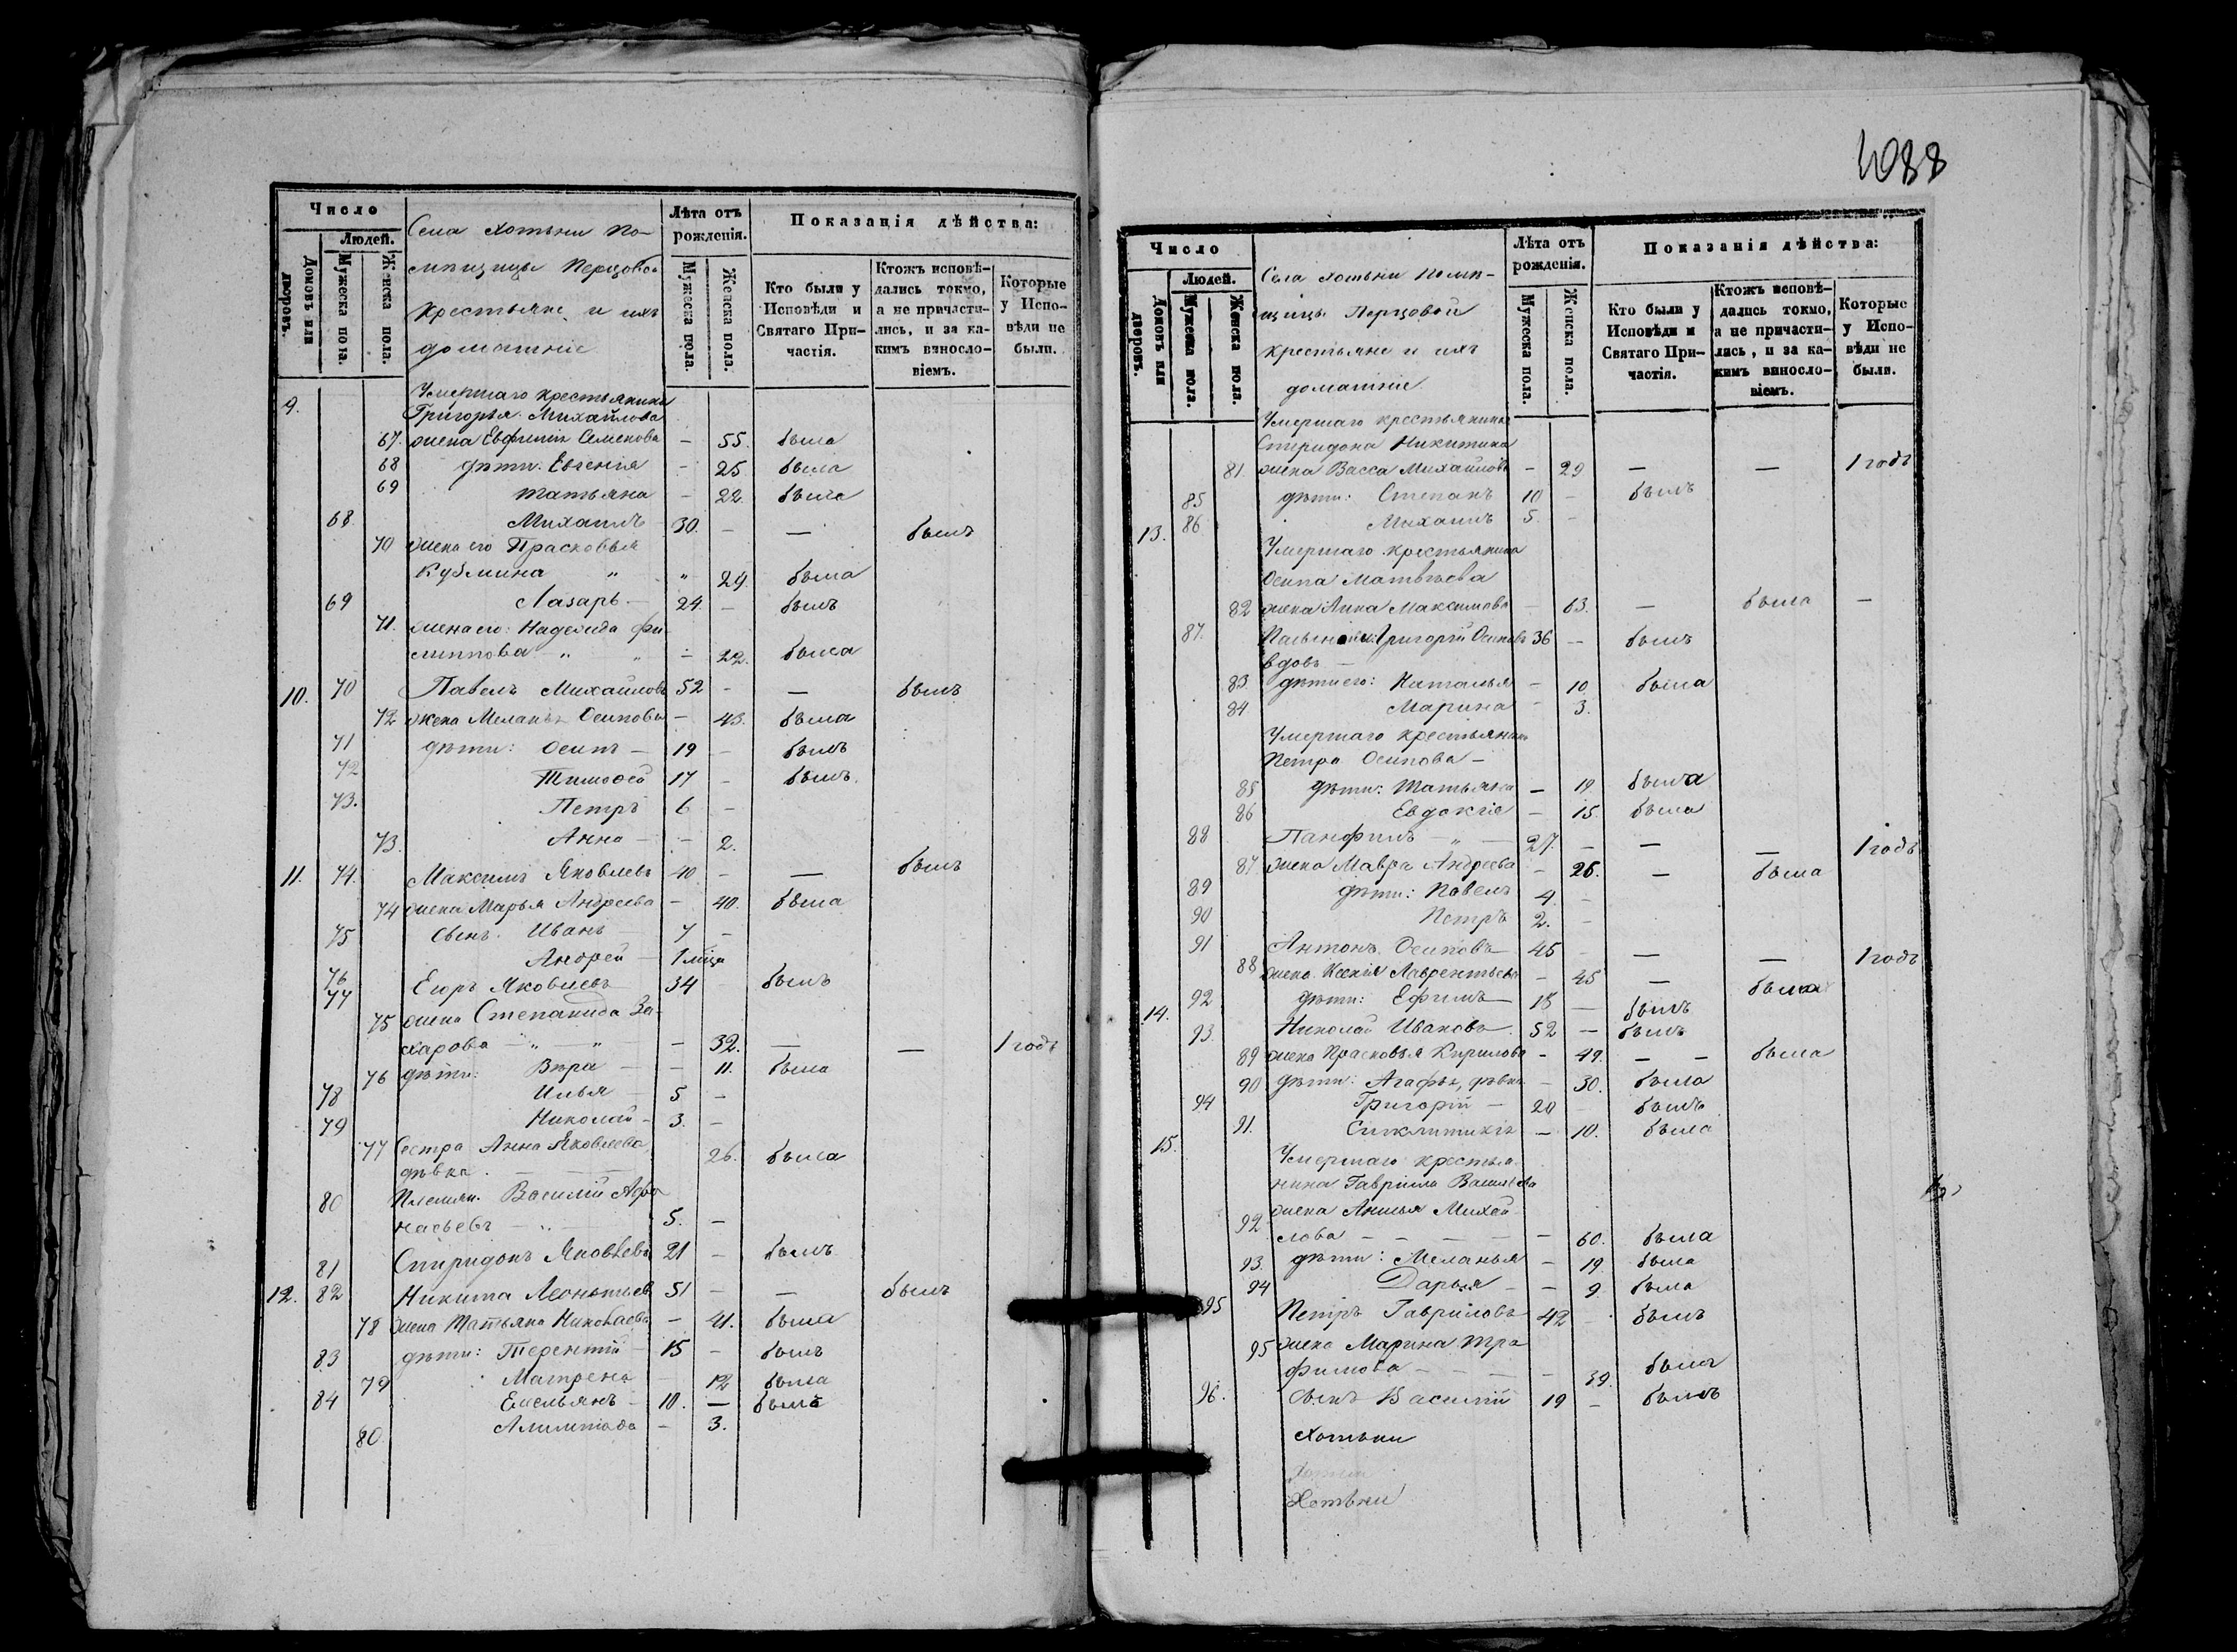 Число
Людей.
Домовъ или дворовъ.
Мужеска пола.
Женска пола.
Села Хотьни По-
мѣщицы Перцовой
крестьяне и ихъ
домашніе
Лѣта отъ рожденія.
Мужеска пола.
Женска пола.
Показанія дѣйства:
Кто были у Исповѣди и Святаго При-частія.
Ктожъ исповѣ-дались токмо, а не причасти-лись, и за ка-кимъ винослo-віемъ.
Которые у Испо-вѣди не были.
9. Умершаго крестьянина
Григорья Михайлова
67. жена Евфимія Семенова — 55. была
68 дѣти. Евгенія — 25 была
69 Татьяна — 22. была
68 Михаилъ 30. — — былъ
70 жена его Прасковья
Кузмина „ „ 29. была
69 Лазарь — 24. — былъ
71. жена его: Надежда Фи-
липпова — „ „ — 22. была
10. 70 Павелъ Михайловъ 52 — — былъ
72 жена Меланья Осипова — 43. была
71 дѣти: Осипъ — 19 — былъ
72 Тимоѳей 17 — былъ.
73. Петръ 6 —
73. Анна — — 2.
11. 74. Максимъ Яковлевъ 40 — — былъ
74 жена Марья Андреева — 40. была
75 сынъ. Иванъ — 7 —
76 Андрей — 1 мѣца
77 Егоръ Яковлевъ 34 — былъ
75 жена Степанида За-
харова — „ — „ — 32. — — 1 годъ
76 дѣти: Вѣра — — 11. была
78 Илья — 5 —
79 Николай — 3. —
77 Сестра Анна Яковлева,
дѣвка. — — — 26. была
80 Племян. Василій Афа
насьевъ — „ — 5. —
81 Спиридонъ Яковлевъ 21 — былъ
12. 82 Никита Леонтьевъ 51 — — былъ
78 жена Татьяна Николаева — 41. была
83 дѣти: Терентій — 15 — былъ
79 Матрена — 12 была
84 Емельянъ — 10. — былъ
80. Алимпіада — 3.
1088
Число
Людей.
Домовъ или дворовъ.
Мужеска пола.
Женска пола.
Села Хотьни Помѣ-
щицы Перцовой
крестьяне и ихъ
домашніе
Лѣта отъ рожденія.
Мужеска пола.
Женска пола.
Показанія дѣйства:
Кто были у Исповѣди и Святаго При-частія.
Ктожъ исповѣ-дались токмо, а не причасти-лись, и за ка-кимъ винослo-віемъ.
Которые у Испо-вѣди не были.
Умершаго крестьянина
Спиридона Никитина
81. жена Васса Михайлова — 29 — — 1 годъ
85 дѣти: Степанъ 10 — былъ
86 Михаилъ 5. —
13. Умершаго крестьянина
Осипа Матвѣева
82 жена Анна Максимова — 63. — была —
87. Григорій Осиповъ 36 — былъ
вдовъ —
83. дѣти его: Наталья — 10. была
84. Марина — 3.
Умершаго крестьянина
Петра Осипова —
85 дѣти: Татьяна — 19 была
86 Евдокія — 15. была
88 Панфилъ — „ — 27. — — — 1 годъ
87. жена Мавра Андреева — 26. — была
89 дѣти: Павелъ 4. —
90 Петръ 2. —
91 Антонъ Осиповъ 45 — — — 1 годъ
88 жена Ксенія Лаврентьева — 45 — была
92 дѣти: Ефимъ 18 — былъ
14. 93. Николай Ивановъ. 52 — былъ
89 жена Прасковья Кирилова — 49. — — была
90 дѣти: Агафья, дѣвка. — 30. была
94 Григорій — 20 — былъ
91. Синклитикія — 10. была
15. Умершаго крестья-
нина Гавріила Васильева
жена Анисья Михай-
92 лова — — — — 60. была
93. дѣти: Меланья — 19. была
94 Дарья — — 9. была
95 Петръ Гавриловъ 42 — былъ
95 жена Марина Тро
фимова — — — 39. была
96. сынъ Василій 19 — былъ
Хотьни
Хотѣни